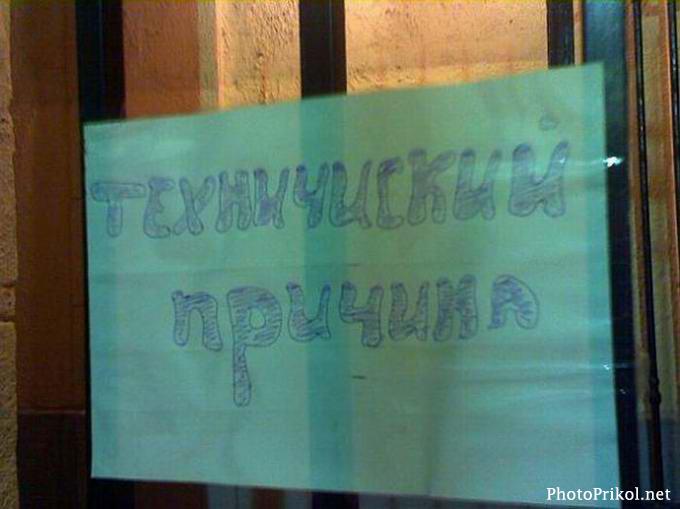 техничиский
причина
PhotoPrikol.net